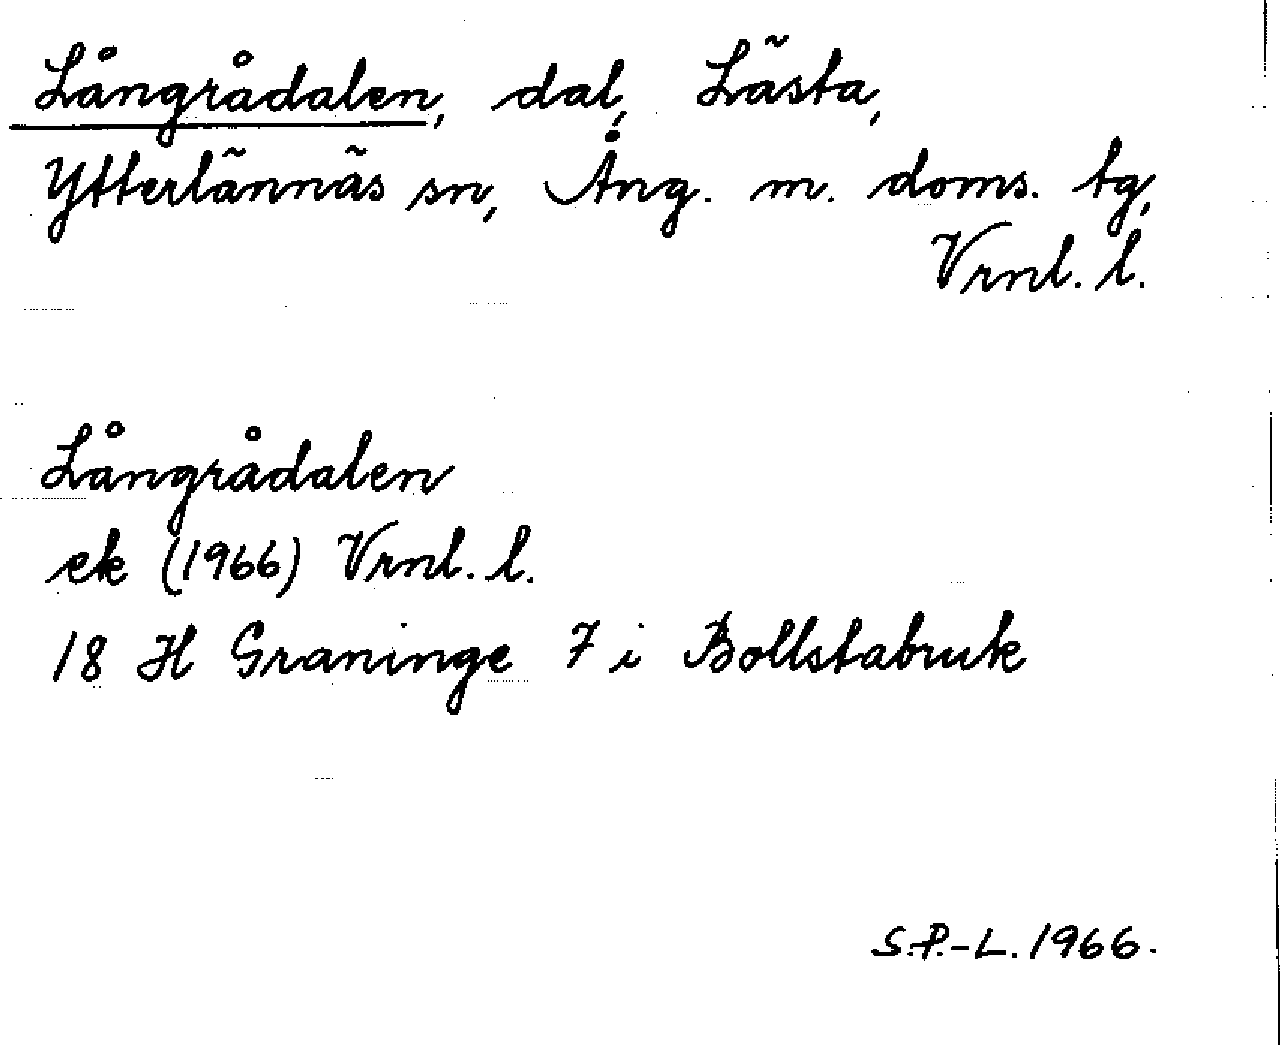 Långrådalen, dal, Lästa,
Ytterlännäs sn, Ång. m. doms. tg,
Vrnl. l.
Långrådalen
ek (1966) Vrnl. l.
18 H Graninge 7 i Bollstabruk
S.P.-L. 1966.